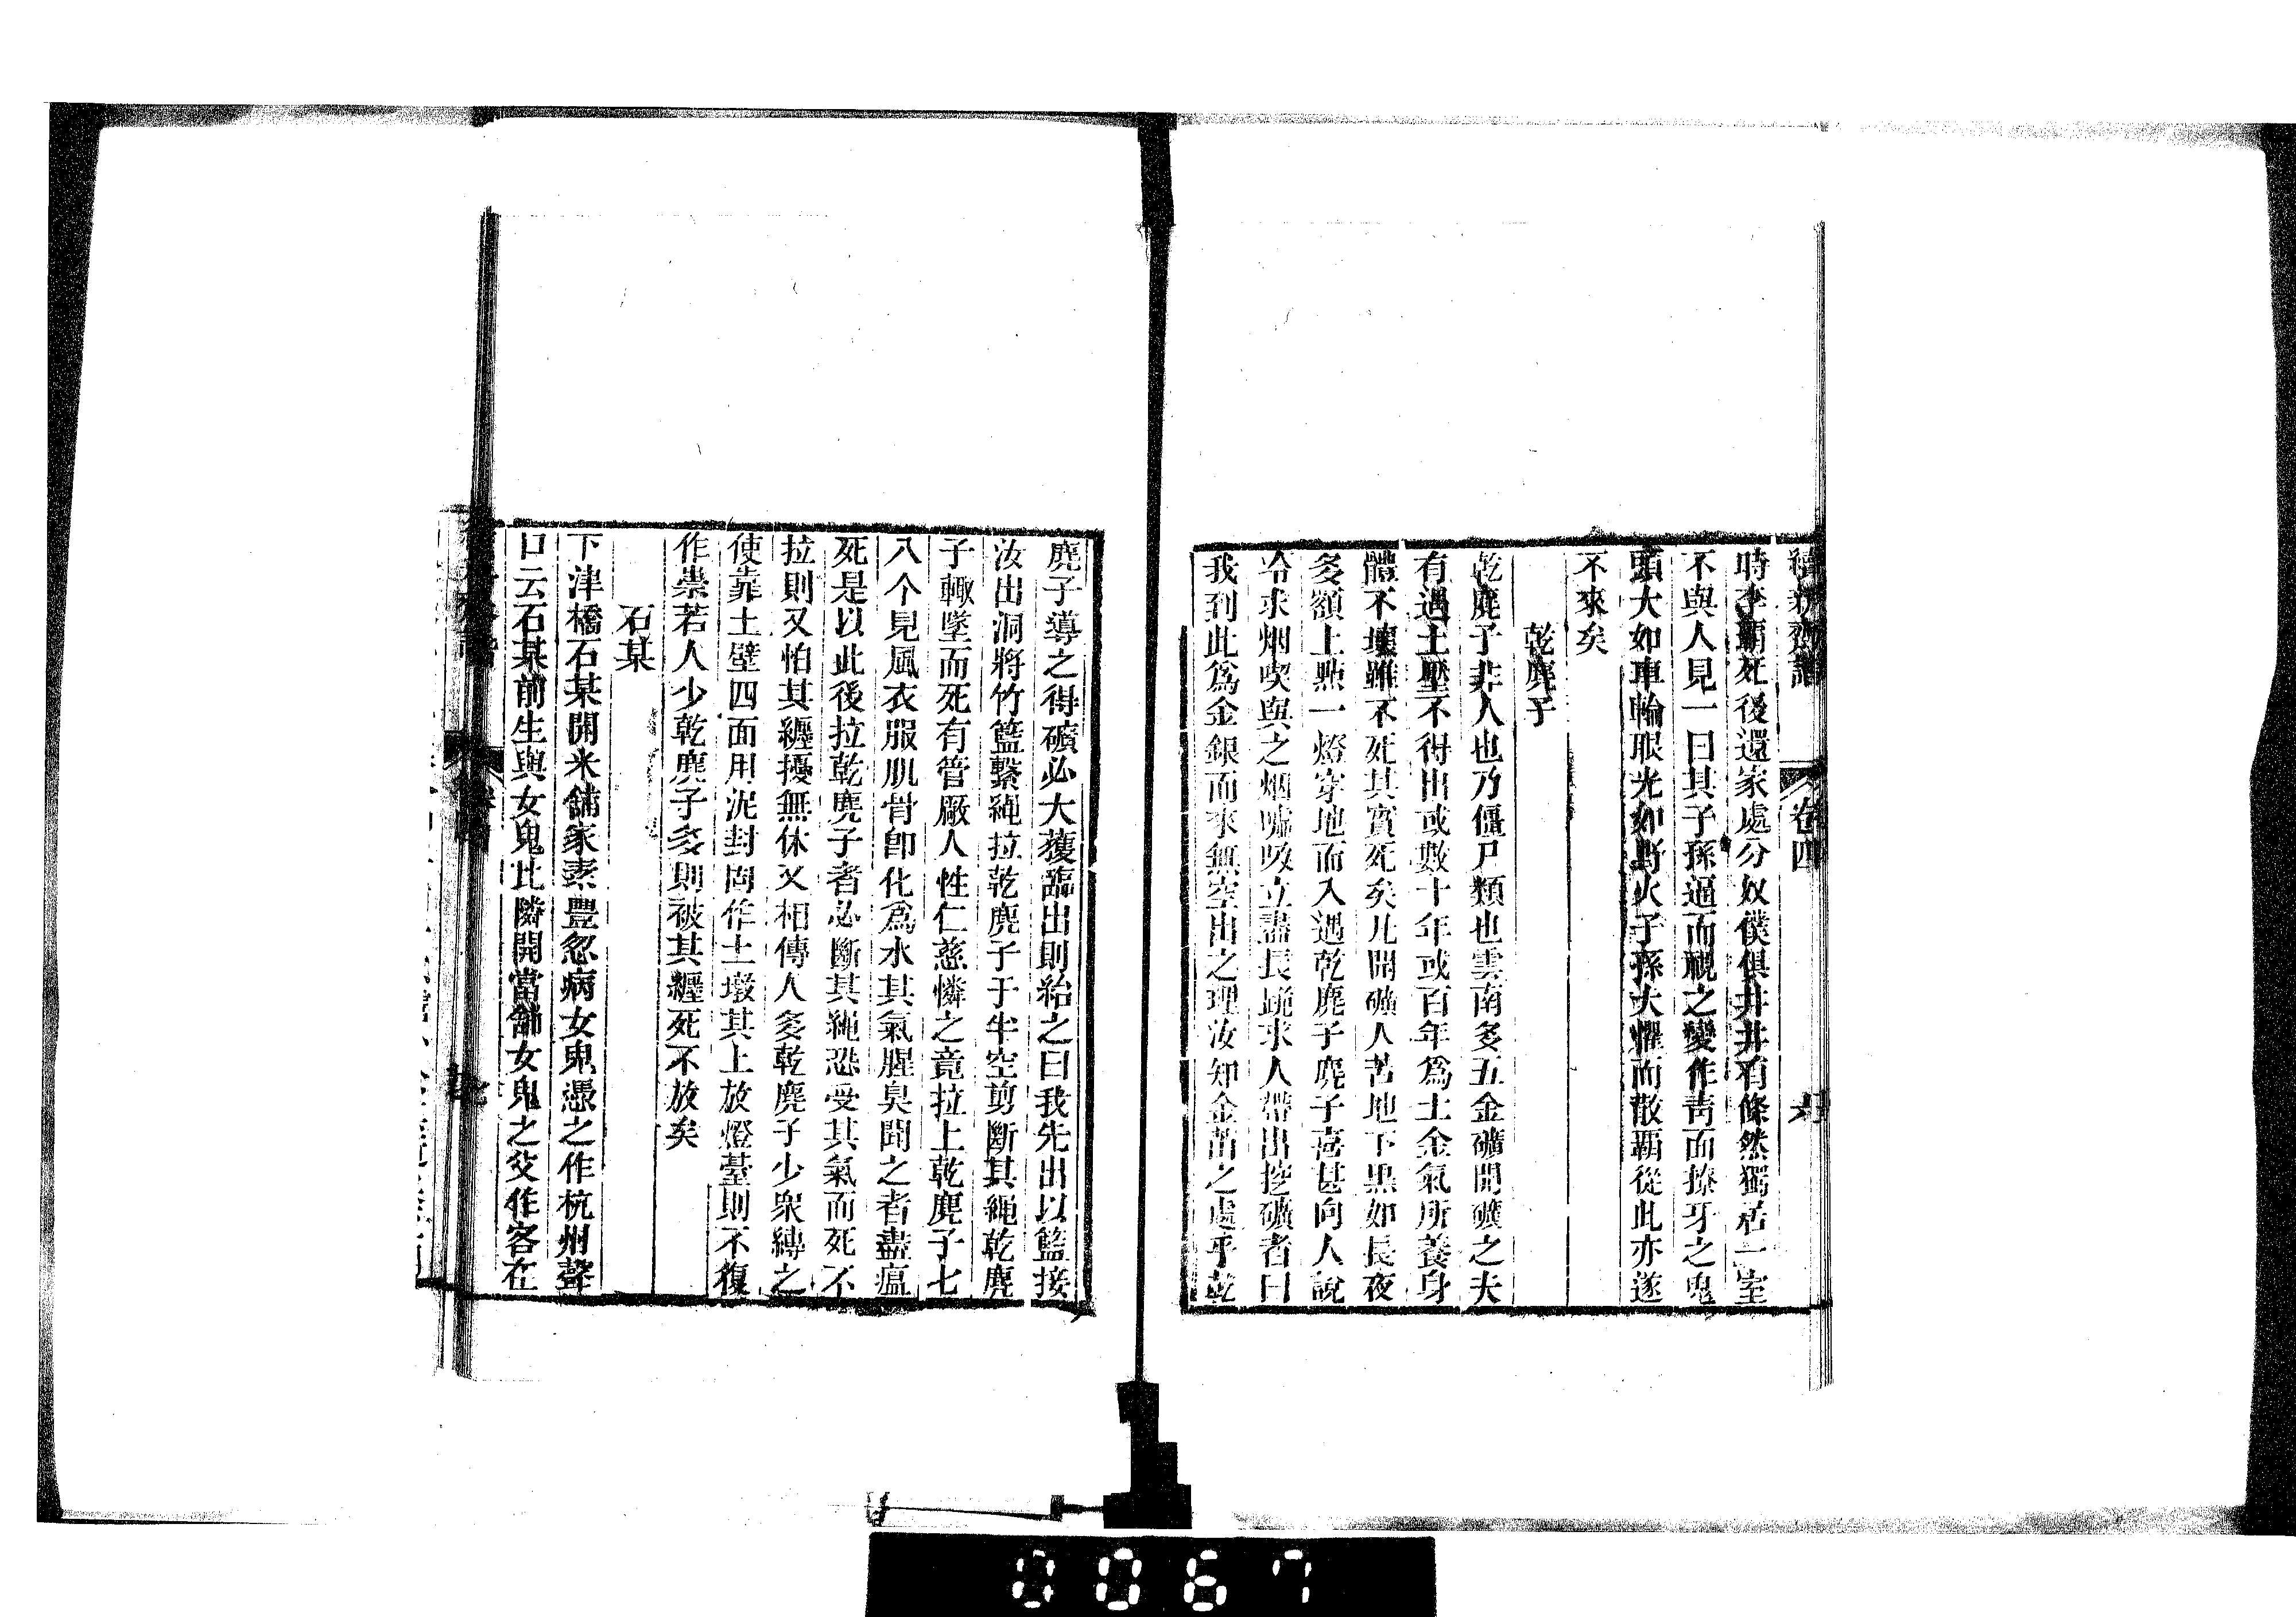 續新齊諧
卷四
時李霸死後還家處分奴僕俱井井有條然獨居一室
不與人見一日其子孫逼而覘之變作青面獠牙之鬼
頭大如車輪眼光如野火子孫大懼而散霸從此亦遂
不來矣
乾麂子
乾麂子非人也乃僵尸類也雲南多五金礦開礦之夫
有遇土壓不得出或數十年或百年為土金氣所養身
體不壞雖不死其實死矣凡開礦人苦地下黑如長夜
多額上點一燈穿地而入遇乾麂子麂子喜甚向人說
冷求烟喫與之烟噓吸立盡長跪求人帶出挖礦者曰
我到此為金銀而來無空出之理汝知金苗之處乎乾
麂子導之得礦必大獲臨出則紿之曰我先出以籃接
汝出洞將竹籃繫繩拉乾麂子于半空剪斷其繩乾麂
子輙墜而死有管厰人性仁慈憐之竟拉上乾麂子七
八个見風衣服肌骨卽化為水其氣腥臭聞之者盡瘟
死是以此後拉乾麂子者必斷其繩恐受其氣而死不
拉則又怕其纏擾無休又相傳人多乾麂子少衆縛之
使靠土壁四面用泥封固作土墩其上放燈臺則不復
作祟若人少乾麂子多則被其纏死不放矣
石某
下津橋石某開米舖家素豐忽病女鬼憑之作杭州聲
口云石某前生與女鬼比隣開當舖女鬼之父作客在
0067